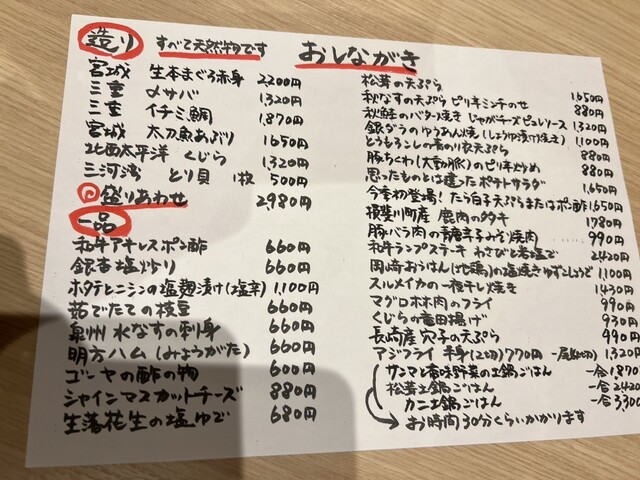 おしながき
造り すべて天然物です
宮城 生本まぐろ赤身 2200円
三重 〆サバ 1,320円
三重 イチミ鯛 1,870円
宮城 太刀魚あぶり 1650円
北西太平洋 くじら 1,320円
三河湾 とり貝 1枚 500円
盛りあわせ 2,980円
一品
和牛アキレスポン酢 660円
銀杏塩炒り 660円
ホタテとニシンの塩麹漬け(塩辛) 1,100円
茹でたての枝豆 660円
泉州 水なすの刺身 660円
明方ハム(みょうがた) 660円
ゴーヤの酢の物 600円
シャインマスカットチーズ 880円
生落花生の塩ゆで 680円
松茸の天ぷら 1,650円
秋なすの天ぷら ピリ辛ミンチのせ 880円
秋鮭のバター焼き じゃがチーズピュレソース 1,320円
銀ダラのゆうあん焼(しょうゆ漬け焼き) 1,100円
とうもろこしの青のり衣天ぷら 880円
豚ちくわ(大動脈)のピリ辛炒め 880円
思ったものとは違ったポテトサラダ
今季初登場! たら白子天ぷらまたはポン酢 1,650円
揖斐川町産 鹿肉のタタキ 1780円
豚バラ肉の青唐辛子みそ焼肉 990円
和牛ランプステーキ わさびと岩塩で 2420円
岡崎おうはん(地鶏)の塩焼きゆずこしょうで 1,100円
スルメイカの一夜干し焼き 1,430円
マグロホホ肉のフライ 990円
くじらの竜田揚げ 930円
長崎産 穴子の天ぷら 990円
アジフライ 半身(2切) 770円 一尾 1320
サンマと香味野菜の土鍋ごはん 一合 1,870
松茸土鍋ごはん 一合 2420
カニ土鍋ごはん 一合 3,300
お時間30分くらいかかります